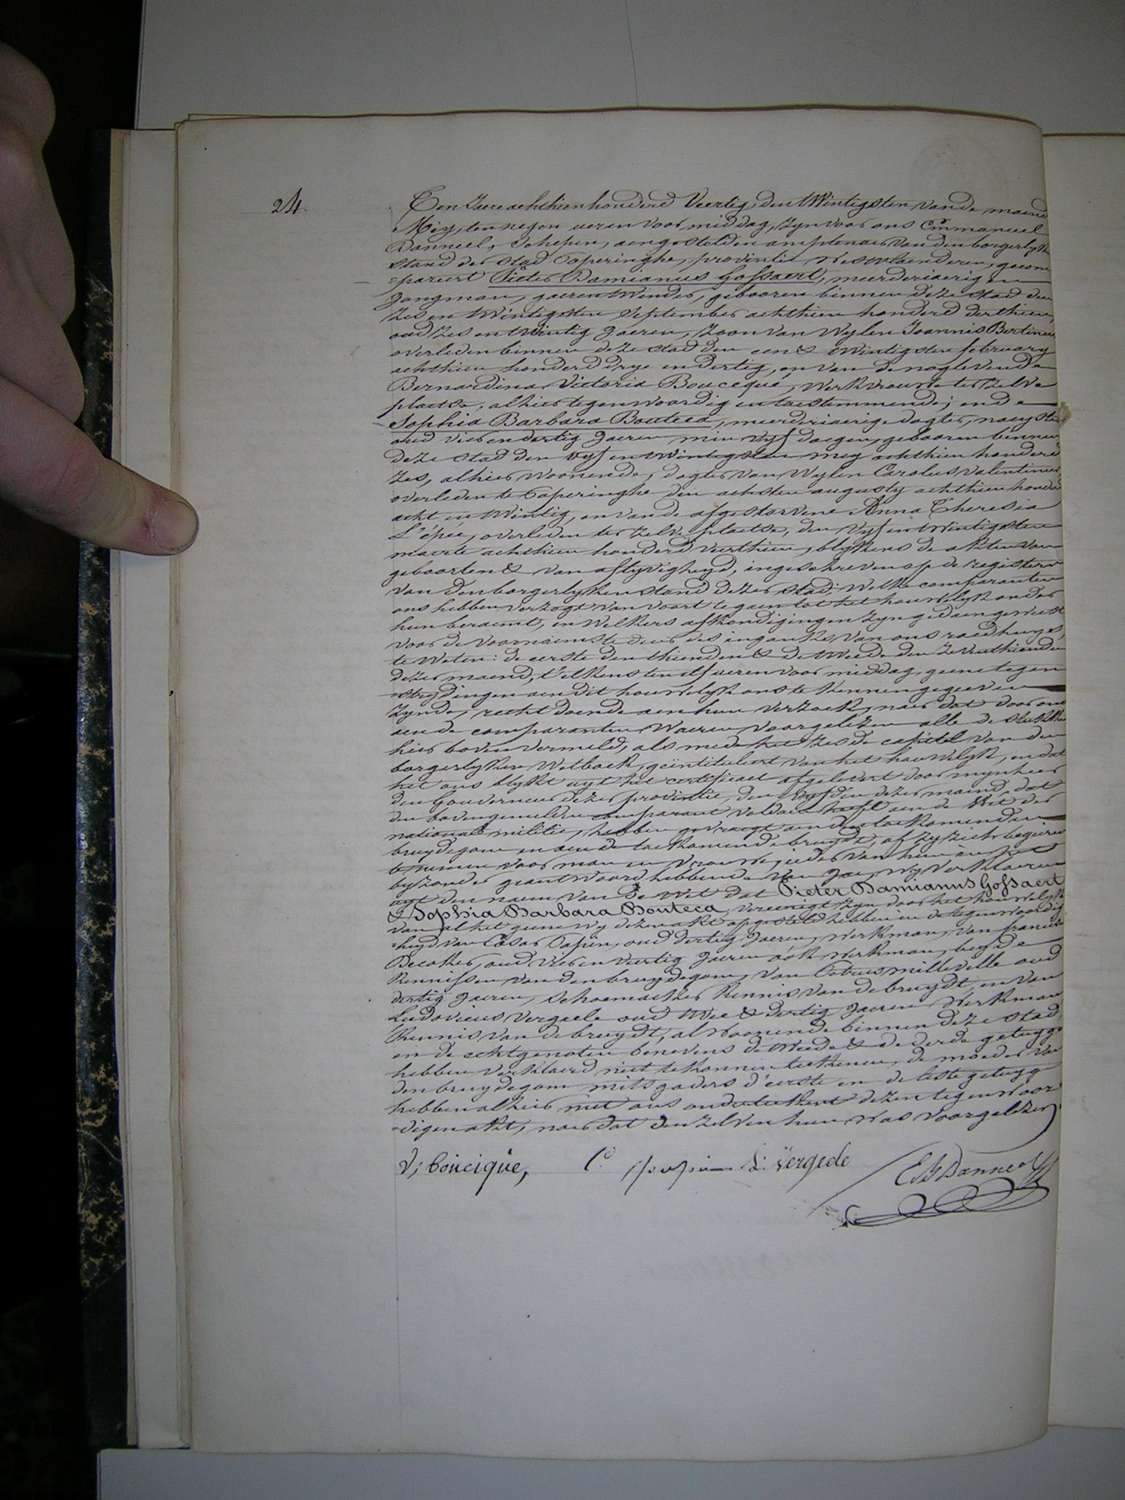 24
Ten Jaere achthien honderd Veertig, den Wintigsten van de maend
Mey, ten negen ueren voormiddag, zyn voor ons Emmaneel
Danneel, Schepen, aengestelden amptenaer van den borgerlyke
stand der stad Poperinghe, provintie Westvlaenderen, gecom
pareert Pieter Damianus Gossaert, meerderjaerigen
Jongman, gebooren binnen deze stad den
Zes en Wintigsten September achthien honderd derthien,
oud Zes en Wintig Jaeren, Zoon van Wylen Joannis Bertinus
overleden binnen deze stad den een & Wintigsten february
achthien honderd drye en dertig, en van de nagelevende
Bernardina Victoria Boucique, Werkvrouwe ter zelve
plaetse, alhier tegenwoordig en toestemmende; ende
Sophia Barbara Bouteca, meerderjaerige dogter, naeystere
oud vier en dertig Jaeren min vyf dagen, gebooren binnen
deze stad den vyf en Wintigsten mey achthien honderd
Zes, alhier Woonende, dogter van Wylen Carolus Valentinus
overleden te Poperinghe den achsten augusty achthien honderd
acht en Wintig, en van de afgestorvene Anna Theresia
L'épée, overleden ter zelve plaetse, den Vyf en Wintigsten
maerte achthien honderd veerthien, blykens de akten van
geboorten & van aflyvigheyd, ingeschreven op de registers
van den borgerlyken stand dezer stad: Welke comparanten
ons hebben verzogt van voort te gaen tot het houwelyk onder
hun beraemt, en Welkers afkondigingen zyn gedaen geweest
voor de voornaemste deur des ingankx van ons raedhuys,
te Weten: de eerste den thienden & de Weede den Zeventhienden
dezer maend, t'elkens ten elf ueren voormiddag, geene tegen
strydingen aen dit houwelyk ons te kennen gegeeven
zynde, recht doende aen hun verzoek, naer dat door ons
aen de comparanten Waeren voorgelezen alle de stukken
hier boven vermeld, als mede het Zesde capittel van den
borgerlyken Wetboek, geintituleert van het houwelyk, en dat
het ons blykt uyt het certificaet afgelevert door mynheer
den Gouverneur dezer provintie, den dezer maend, dat
den bovengemelden comparant voldaen heeft aen de Wet der
nationale militie, hebben gevraegt aen den toekomenden
bruydegom en aen de toekomende bruyd, of zy zich begeiren
te neemen voor man en Vrouwe; ieder van hun in het
byzonder geantwoord hebbende van Jae, wy verklaeren
uyt den naem van de Wet dat Pieter Damianus Gossaert
& Sophia Barbara Bouteca, vereenigt zyn door het houwelyk
van al het geene wy deze akt opgesteld hebben in de tegenwoordig
heyd van Cesar Papin, oud dertig Jaeren, Werkman, van francis
Decoker, oud vier en veertig Jaeren ook Werkman, beyde
Kennissen van den bruydegom, van millevelle oud
dertig Jaeren, schoemaeker Kennis van de bruydt, en van
Ludovicus Vergeele oud Wee & dertig Jaeren Werkman
Kennis van de bruydt, al Woonende binnen deze stad,
en de echtgenoten benevens de Weede & de derde getuyge
hebben verklaerd niet te konnen teekenen, de moeder van
den bruydegom mitsgaders d'eerste en de leste getuyge
hebben alhier met ons onderteekent dezen tegenwoor
digen akt, naer dat den zelven hun Was voorgelezen
V; boucique, C papin L: vergele E. J. Danneel